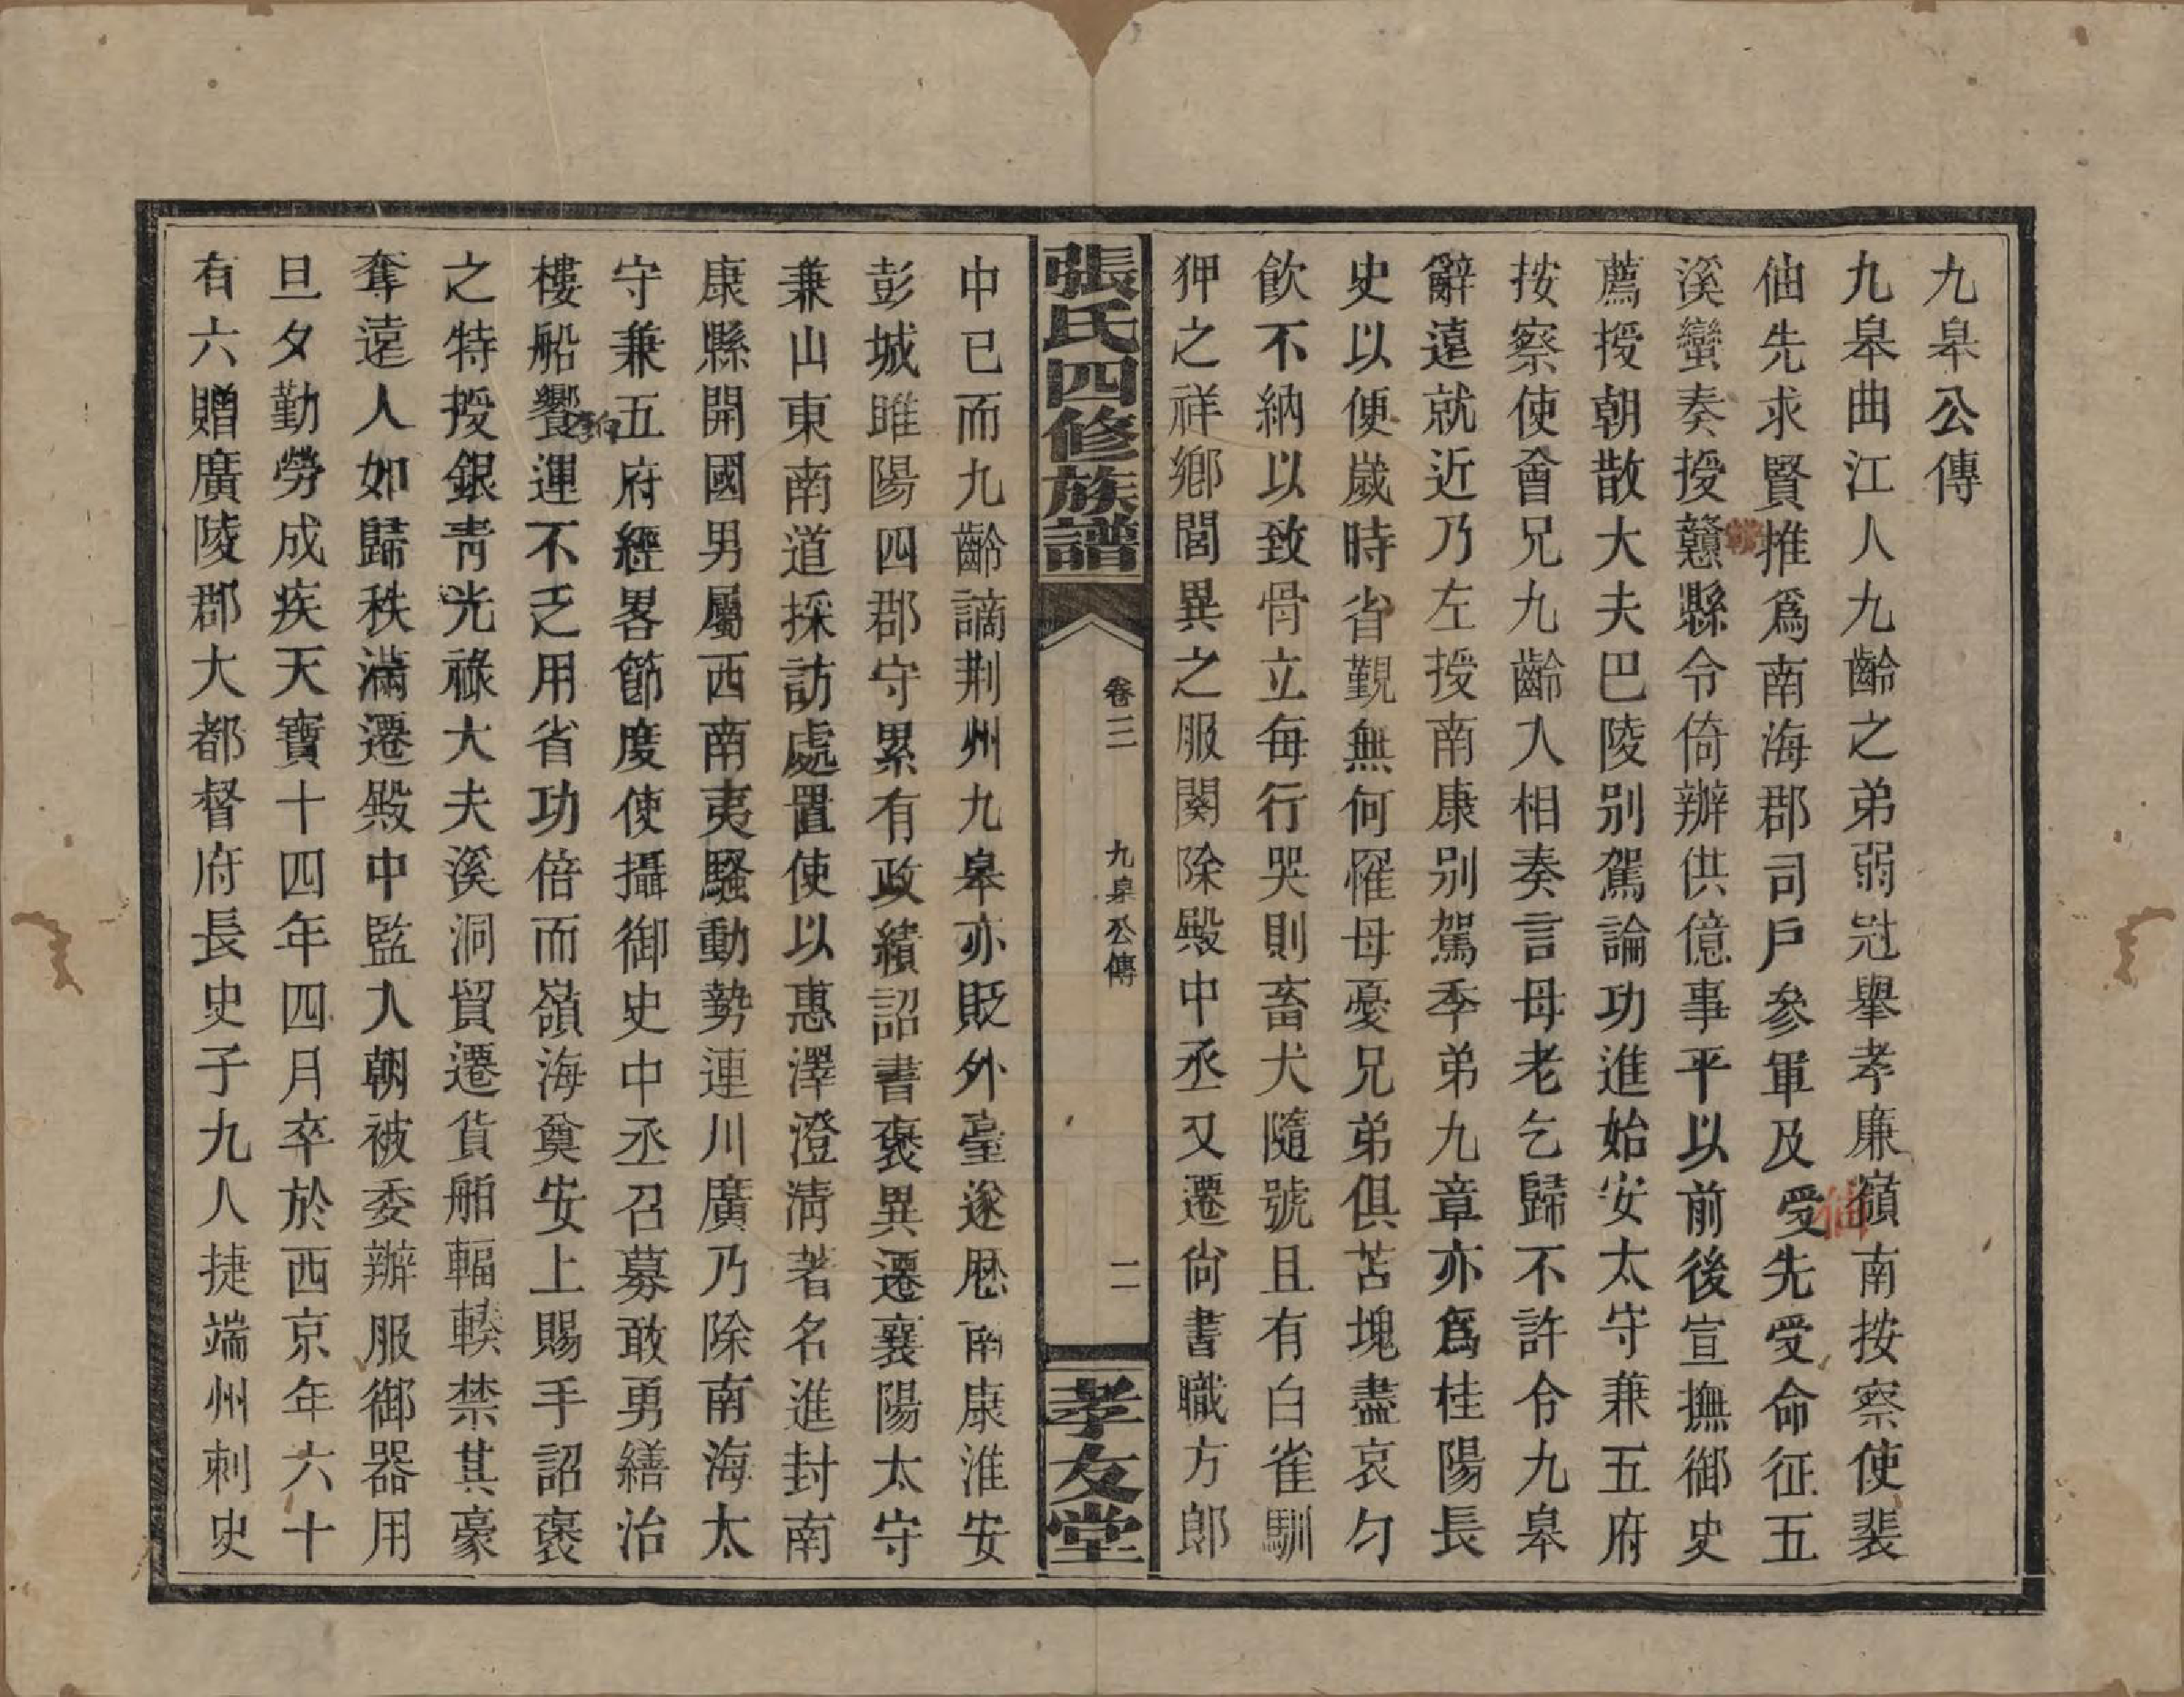 九皋公傳
九皋曲江人九齡之弟弱冠舉孝廉嶺南按察使裴
伷先求賢推爲南海郡司戶參軍及受先受命征五
溪蠻奏授戇縣令倚辦供億事平以前後宣撫御史
薦授朝散大夫巴陵别駕論功進始安太守兼五府
按察使會兄九齡入相奏言母老乞歸不許令九皋
辭遠就近乃左授南康别駕季弟九章亦爲桂陽長
史以便歲時省覲無何罹母憂兄弟俱苫塊盡哀勺
飲不納以致骨立每行哭則畜犬隨號且有白雀馴
狎之祥鄉閭異之服闋除殿中丞又遷尙書職方郎
張氏四修族譜
卷三
九皋公傳
二
孝友堂
中已而九齡謫荆州九皋亦貶外臺遂歷南康淮安
彭城雎陽四郡守累有政績詔書褒異遷襄陽太守
兼山東南道採訪處置使以惠澤澄清著名進封南
康縣開國男屬西南夷騷動勢連川廣乃除南海太
守兼五府經畧節度使攝御史中丞召募敢勇繕治
樓船饗運不乏用省功倍而嶺海奠安上賜手詔褒
之特授銀青光祿大夫溪洞貿遷貨舶輻輳禁其豪
奪遠人如歸秩滿遷殿中監入朝被委辦服御器用
旦夕勤勞成疾天寶十四年四月卒於西京年六十
有六贈廣陵郡大都督府長史子九人捷端州刺史
伷